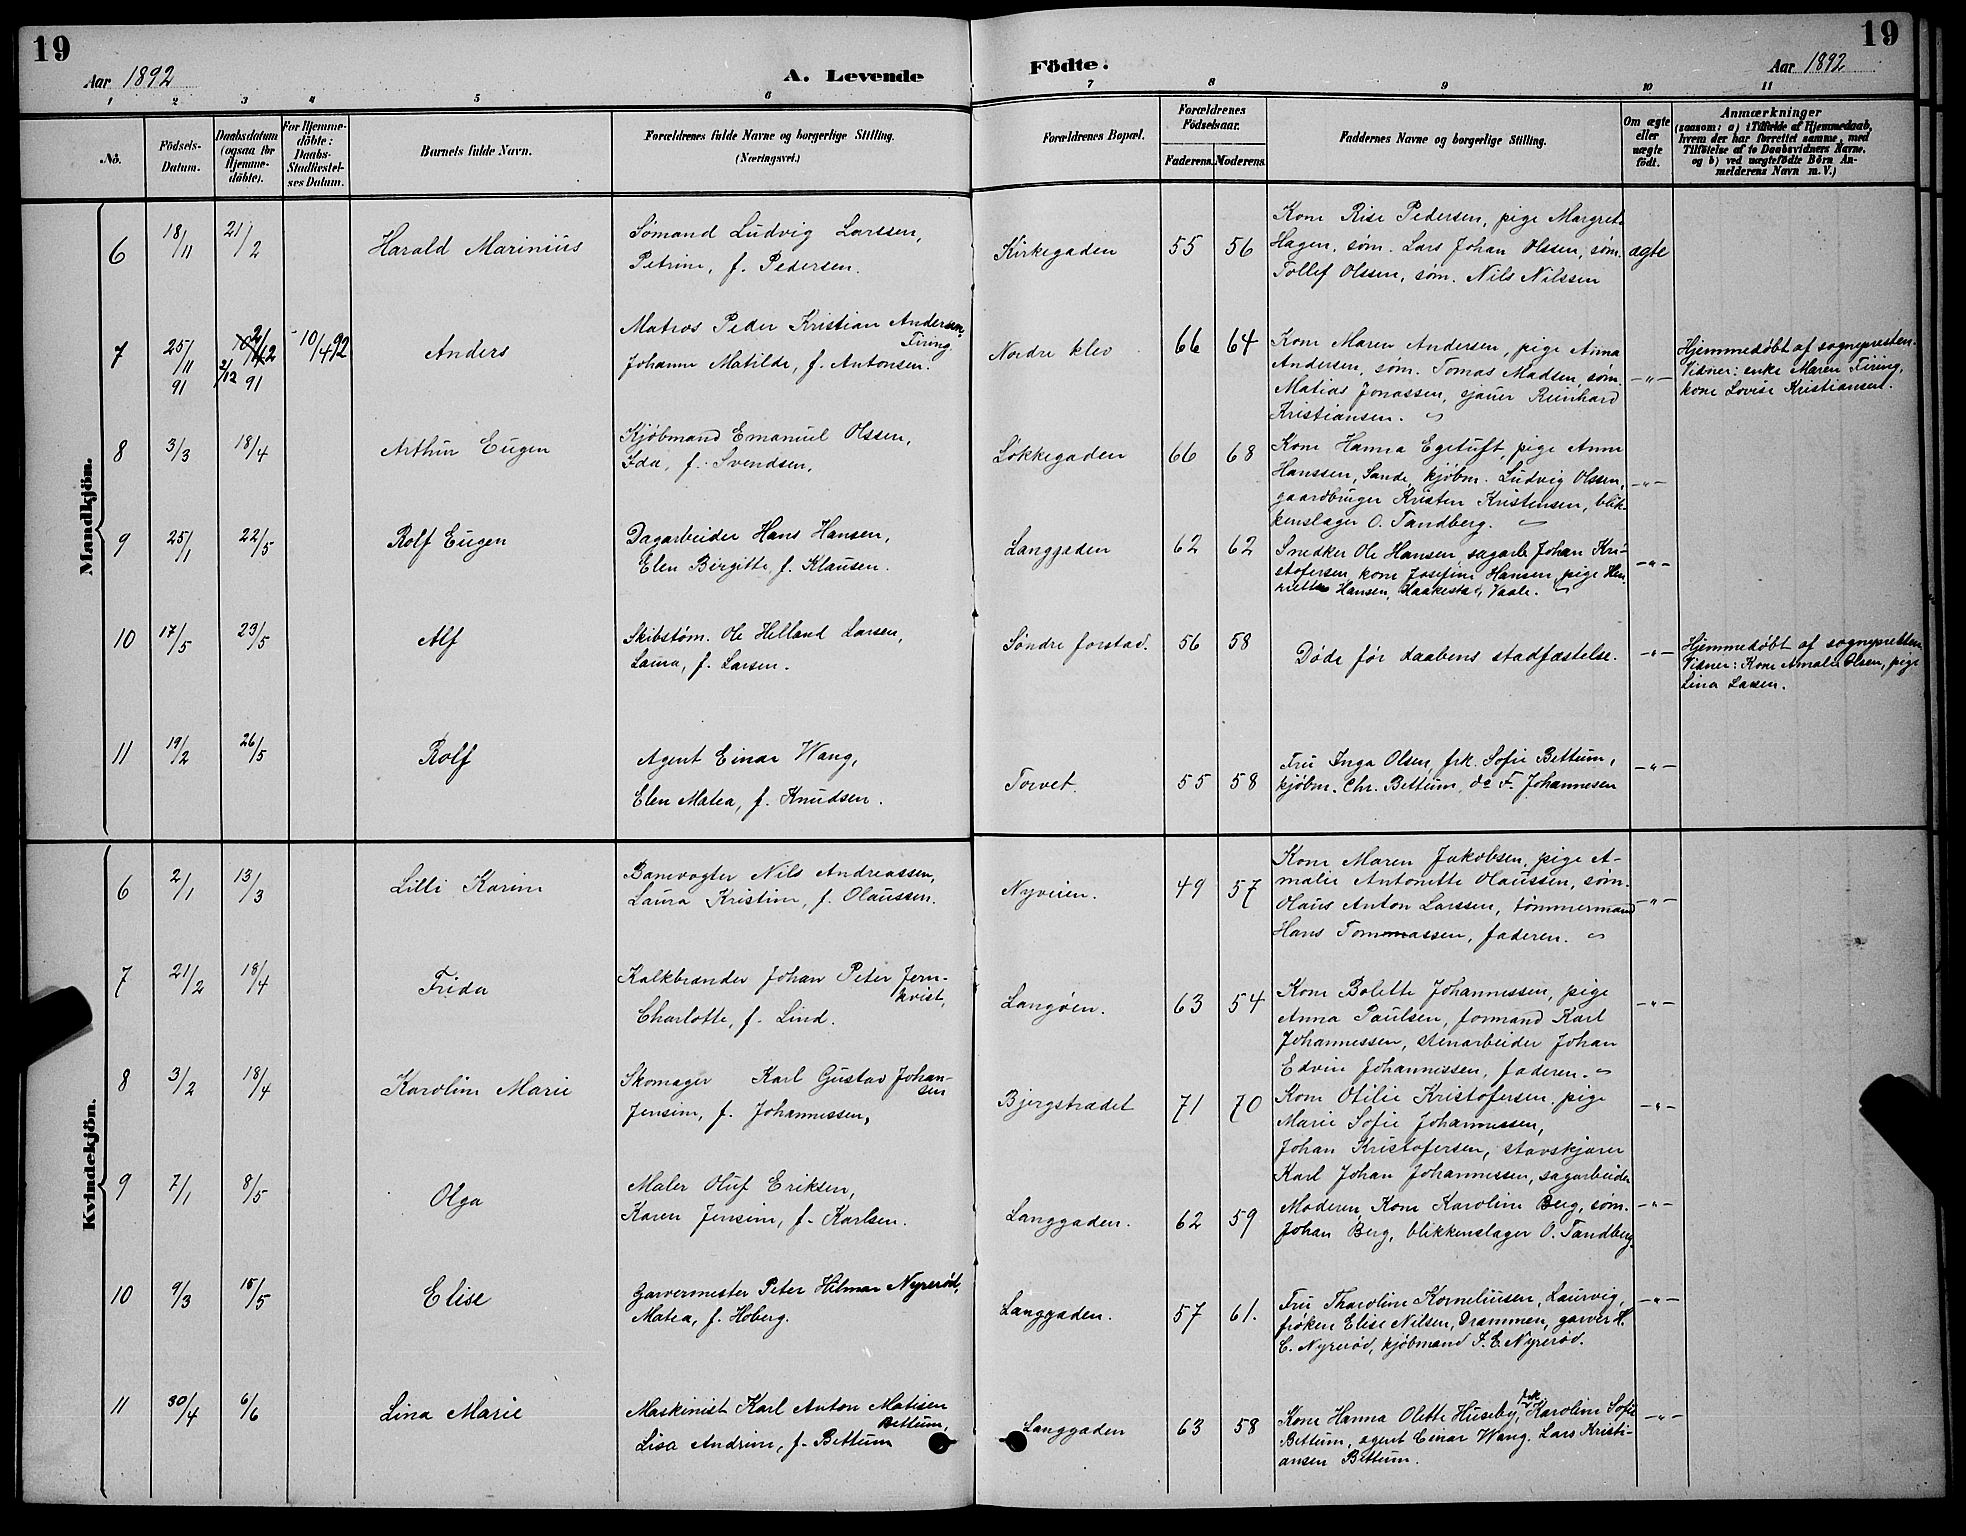 19
19
Aar 1892
A. Levende
Födte.
Aar 1892
1 2 3 4 5 6 7 8 9 10 11
No.
Födsels-
Datum.
Daabsdatum
(ogsaa for
Hjemme-
döbte).
For Hjemme-
döbte:
Daabs-
Stadfæstel-
ses Datum.
Barnets fulde Navn.
Forældrenes fulde Navne og borgerlige Stilling.
(Næringsvei.)
Forældrenes Bopæl.
Forældrenes
Födselsaar.
Faderens. Moderens.
Faddernes Navne og borgerlige Stilling.
Om ægte
eller
uægte
födt.
Anmærkninger
(saasom: a) i Tilfælde af Hjemmedaab,
hvem der har forrettet samme, med
Tilföielse af to Daabsvidners Navne,
og b) ved uægtefödte Börn An-
melderens Navn m. V.)
Mandkjön.
6
18/11
21/2
Harald Marinius
Sømand Ludvig Larssen,
Petrine, f. Pedersen.
Kirkegaden
55 56
Kone Rise Pedersen, pige Margrete
Hagen, søm. Lars Johan Olssen, søm.
Tollef Olssen, søm. Nils Nilssen
ægte
7
25/11 91
2/12 91
10/4 92
Anders
Matros Peder Kristian Andersen
Firing
Johanne Matilde, f. Antonsen.
Nordre klev
66 64
Kone Maren Andersen, pige Anna
Andersen, søm. Tomas Madsen, søm.
Matias Jonassen, sjauer Reinhard
Kristiansen.
-"-
Hjemmedøbt af sognepresten.
Vidner: enke Maren Firing,
kone Lovise Kristiansen.
8
3/3
18/4
Arthur Eugen
Kjøbmand Emanuel Olssen,
Ida, f. Svendsen,
Løkkegaden
66 68
Kone Hanna Egetuft, pige Anne
Hanssen, Sande, kjøbm. Ludvig Olssen,
gaardbruger Kristen Kristensen, blik-
kenslager O. Tandberg.
-"-
9
25/1
22/5
Rolf Eugen
Dagarbeider Hans Hansen,
Elen Birgitte, f. Klausen.
Langgaden
62 62
Snedker Ole Hansen, sagarb. Johan Kri-
stofersen, kone Josefine Hansen, pige Hen-
riette Hansen, Haakestad, Vaale.
-"-
10
17/5
23/5
Alf
Skibstøm. Ole Helland Larsen,
Laura, f. Larsen.
Søndre forstad.
56 58
Døde før daabens stadfæstelse.
-"-
Hjemmedøbt af sognepresten.
Vidner: Kone Amalie Olsen, pige
Lina Larsen.
11
19/2
26/5
Rolf
Agent Einar Wang,
Elen Matea, f. Knudsen.
Torvet.
55 58
Fru Inga Olsen, frk. Sofie Bettum,
kjøbm. Chr. Bettum, do F. Johannesen
-"-
Kvindekjön.
6
2/1
13/3
Lilli Karine
Banevogter Nils Andreassen,
Laura Kristine, f. Olaussen.
Nyveien.
49 57
Kone Maren Jakobsen, pige A-
malie Antonette Olaussen, søm.
Olaus Anton Larssen, tømmermand
Hans Tommassen, faderen.
-"-
7
21/2
18/4
Frida
Kalkbrænder Johan Peter Jern-
kvist,
Charlotte, f. Lind.
Langøen.
63 54
Kone Bolette Johannessen, pige
Anna Paulsen, formand Karl
Johannessen, stenarbeider Johan
Edvin Johannissen, faderen.
-"-
8
3/2
18/4
Karoline Marie
Skomager Karl Gustav Johan-
sen
Jensine, f. Johannessen,
Bjergstrædet
71 70
Kone Otilie Kristofersen, pige
Marie Sofie Johannessen,
Johan Kristofersen, stavskjærer
Karl Johan Johannessen, sagarbeider
-"-
9
7/1
8/5
Olga
Maler Oluf Eriksen,
Karen Jensine, f. Karlsen.
Langgaden.
62 59
Moderen, Kone Karoline Berg, søm.
Johan Berg, blikkenslager O. Tandberg.
-"-
10
9/3
15/5
Elise
Garvermester Peter Hilmar Nyrerød,
Matea, f. Hoberg.
Langgaden.
57 61.
Fru Tharoline Korneliusen, Laurvig,
frøken Elise Nilsen, Drammen, garver H.
C. Nyrerød, kjøbmand F. E. Nyrerød.
-"-
11
30/4
6/6
Lina Marie
Maskinist Karl Anton Matisen
Bettum,
Lisa Andrine, f. Bettum
Langgaden
63 58
Kone Hanna Olette Huseby, frk Karoline Sofie
Bettum, agent Einar Wang. Lars Kristi-
ansen Bettum.
-"-